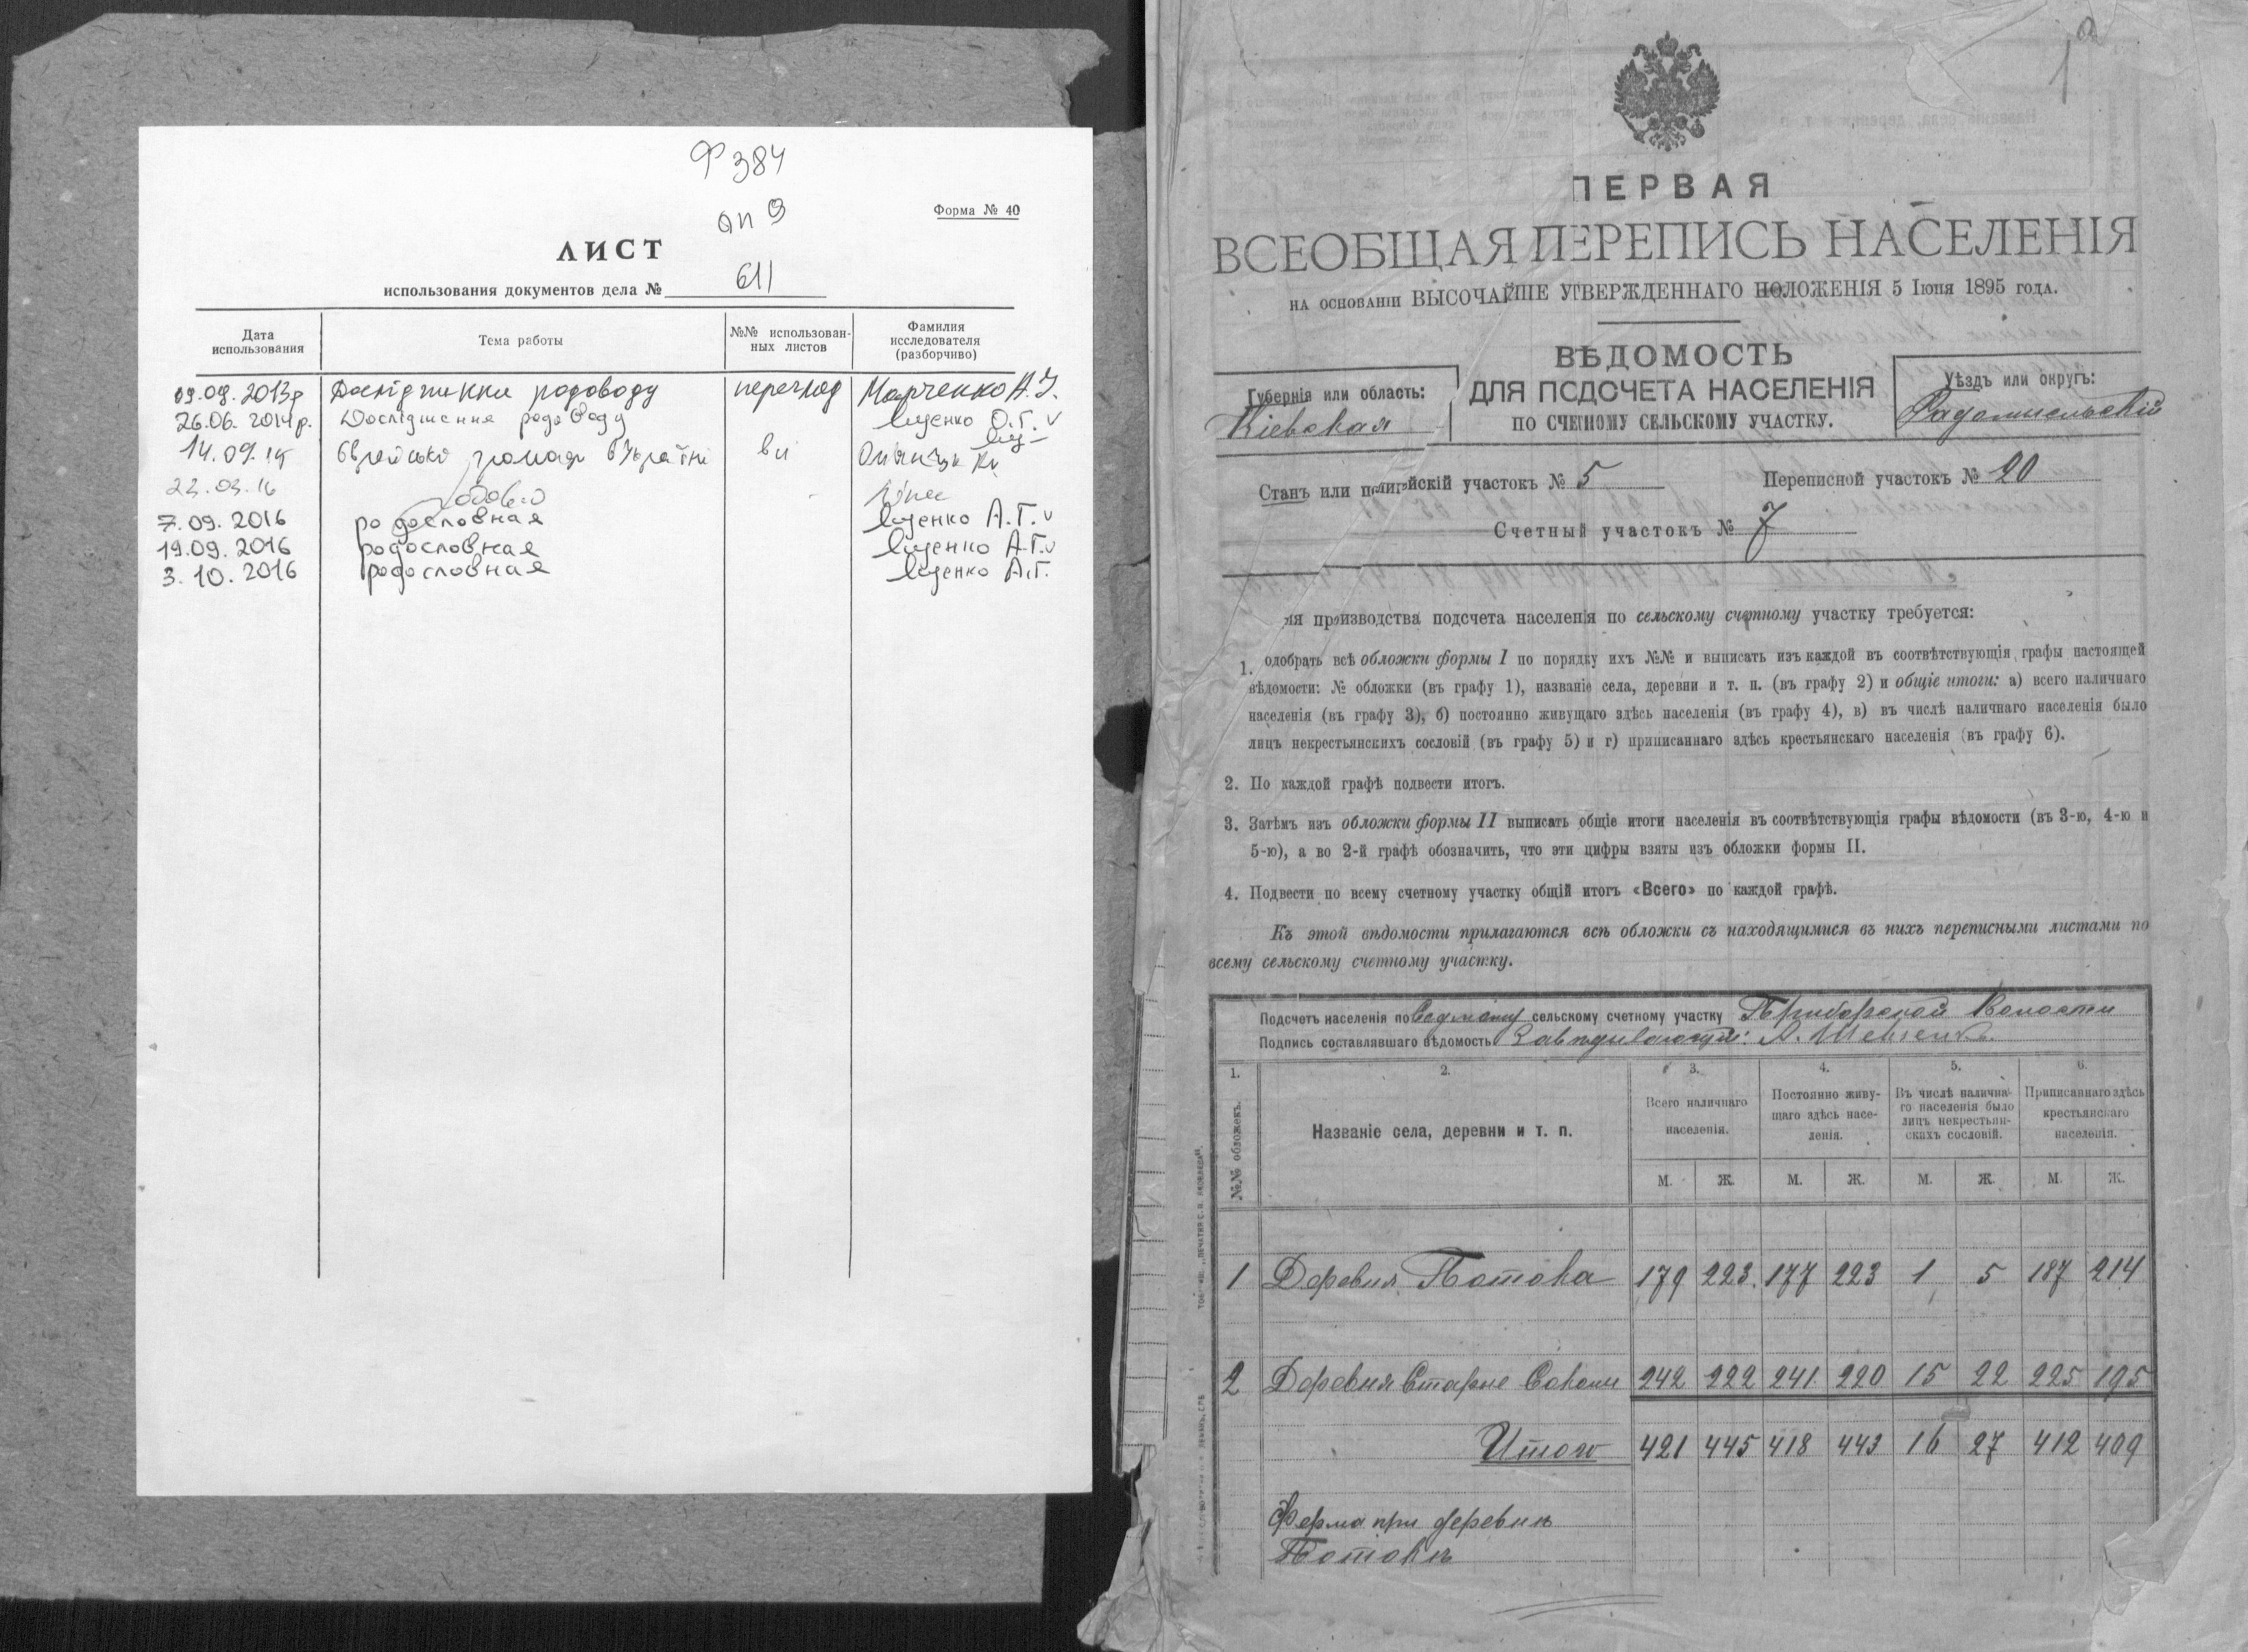 Ф 384
оп 9
Форма № 40
ЛИСТ
использования документов дела № 611
Дата использования
Тема работы
№№ использован-
ных листов
Фамилия исследователя (разборчиво)
09.09.2013р родоводу перегляд Марченко А.
26.06.2014р. Дослідження родоводу О.Г. v
14.09.15 Єврейські громади в Україні
23.03.16
7.09.2016 родословная А.Г. v
19.09.2016 родословная А.Г. v
3.10.2016 родословная А.Г.
1
ПЕРВАЯ
ВСЕОБЩАЯ ПЕРЕПИСЬ НАСЕЛЕНІЯ
НА ОСНОВАНІИ ВЫСОЧАЙШЕ УТВЕРЖДЕННАГО ПОЛОЖЕНІЯ 5 Іюня 1895 ГОДА.
ВѢДОМОСТЬ
ДЛЯ ПОДСЧЕТА НАСЕЛЕНІЯ
ПО СЧЕТНОМУ СЕЛЬСКОМУ УЧАСТКУ.
Губернія или область:
Кіевская
Уѣздъ или округъ:
Радомысльскій
Станъ или полицейскій участокъ № 5 Переписной участокъ № 20
Счетный участокъ № 7
ля производства подсчета населенія по сельскому счетному участку требуется:
1. одобрать всѣ обложки формы I по порядку ихъ №№ и выписать изъ каждой въ соотвѣтствующія графы настоящей
вѣдомости: № обложки (въ графу 1), названіе села, деревни и т. п. (въ графу 2) и общіе итоги: а) всего наличнаго
населенія (въ графу 3), б) постоянно живущаго здѣсь населенія (въ графу 4), в) въ числѣ наличнаго населенія было
лицъ некрестьянскихъ сословій (въ графу 5) и г) приписаннаго здѣсь крестьянскаго населенія (въ графу 6).
2. По каждой графѣ подвести итогъ.
3. Затѣмъ изъ обложки формы II выписать общіе итоги населенія въ соотвѣтствующія графы вѣдомости (въ 3-ю, 4-ю и
5-ю), а во 2-й графѣ обозначить, что эти цифры взяты изъ обложки формы II.
4. Подвести по всему счетному участку общій итогъ «Всего» по каждой графѣ.
Къ этой вѣдомости прилагаются всѣ обложки съ находящимися въ нихъ переписными листами по
всему сельскому счетному участку.
Подсчетъ населенія по седьмому сельскому счетному участку Приборской Волости
Подпись составлявшаго вѣдомость Завѣдывающій: А.
1. 2. 3. 4. 5. 6.
№№ обложекъ.
Названіе села, деревни и т. п.
Всего наличнаго населенія.
Постоянно живу-
щаго здѣсь насе-
ленія.
Въ числѣ налична-
го населенія было
лицъ некрестьян-
скихъ сословій.
Приписаннаго здѣсь
крестьянскаго
населенія.
М. Ж. М. Ж. М. Ж. М. Ж.
1 Деревня Потока 179 223 177 223 1 5 187 214
2 Деревня Старые Соколы 242 222 241 220 15 22 225 195
Итого 421 445 418 443 16 27 412 409
Ферма при деревнѣ
Потокѣ